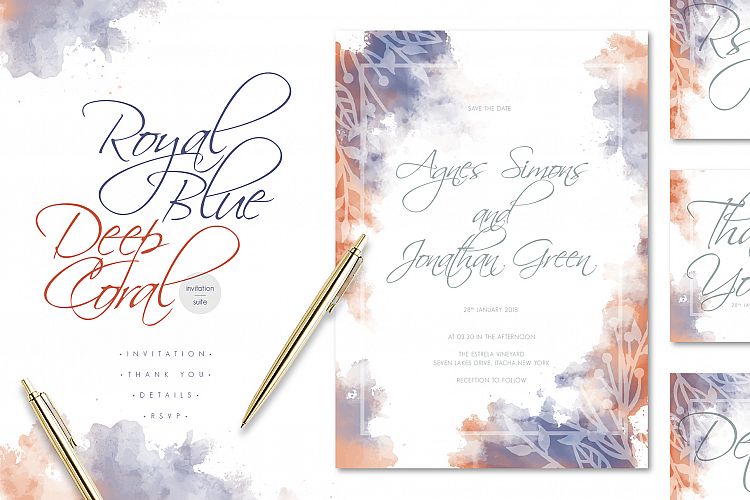 Royal
Blue
Deep
Coral
invitation
suite
• INVITATION •
• THANK YOU •
• DETAILS •
• RSVP •
SAVE THE DATE
Agnes Simons
and
Jonathan Green
28th JANUARY 2018
AT 03:30 IN THE AFTERNOON
THE ESTRELA VINEYARD
SEVEN LAKES DRIVE, ITACHA,NEW YORK
RECEPTION TO FOLLOW
Rs
Tha
Yo
28th JAN
De